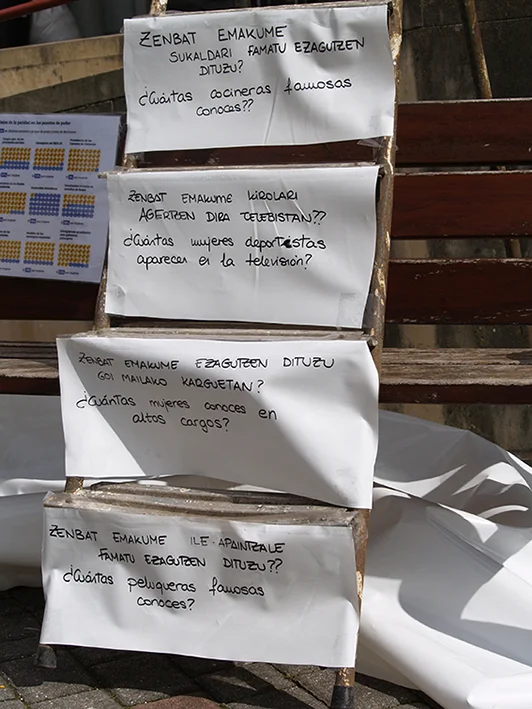 ZENBAT EMAKUME
SUKALDARI FAMATU EZAGUTZEN
DITUZU?
¿Cuántas cocineras famosas
conoces??
ZENBAT EMAKUME KIROLARI
AGERTZEN DIRA TELEBISTAN??
¿Cuántas mujeres deportistas
aparecen en la televisión?
ZENBAT EMAKUME EZAGUTZEN DITUZU
GOI MAILAKO KARGUETAN?
¿Cuántas mujeres conoces en
altos cargos?
ZENBAT EMAKUME ILE-APAINTZALE
FAMATU EZAGUTZEN DITUZU??
¿Cuántas peluqueras famosas
conoces?